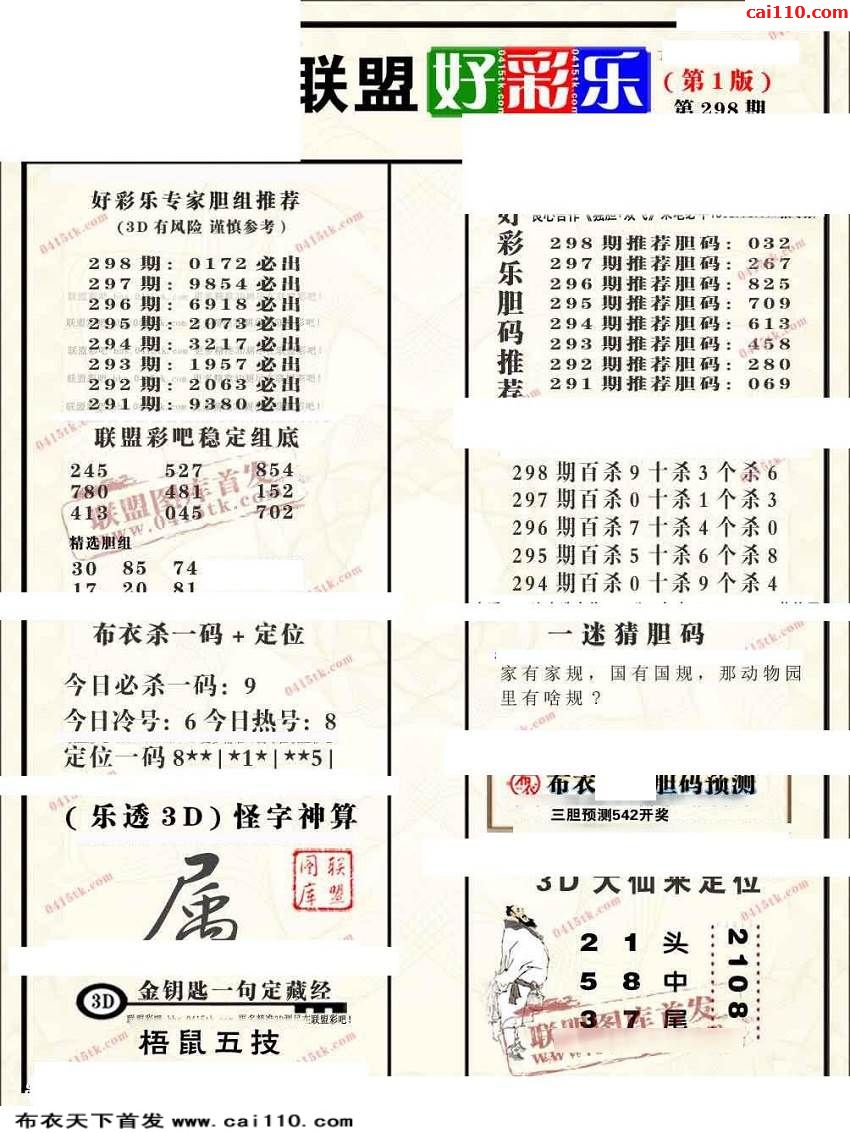 cai110.com
联盟好彩乐
(第1版)
第298期
好彩乐专家胆组推荐
(3D有风险 谨慎参考)
298期: 0172必出
297期: 9854必出
296期: 6918必出
295期: 2073必出
294期: 3217必出
293期: 1957必出
292期: 2063必出
291期: 9380必出
联盟彩吧稳定组底
245 527 854
780 481 152
413 045 702
精选胆组
30 85 74
17 20 81
布衣杀一码+定位
今日必杀一码: 9
今日冷号: 6 今日热号: 8
定位一码8**|*1*|**5|
(乐透3D)怪字神算
属
联盟图库
3D 金钥匙一句定藏经
梧鼠五技
好彩乐胆码推荐
298期推荐胆码: 032
297期推荐胆码: 267
296期推荐胆码: 825
295期推荐胆码: 709
294期推荐胆码: 613
293期推荐胆码: 458
292期推荐胆码: 280
291期推荐胆码: 069
298期百杀9十杀3个杀6
297期百杀0十杀1个杀3
296期百杀7十杀4个杀0
295期百杀5十杀6个杀8
294期百杀0十杀9个杀4
一迷猜胆码
家有家规，国有国规，那动物园
里有啥规？
布衣 胆码预测
三胆预测542开奖
3D大仙来定位
2 1 头
5 8 中
3 7 尾
2108
联盟图库首发
www.0415tk.com
0415tk.com
布衣天下首发 www.cai110.com